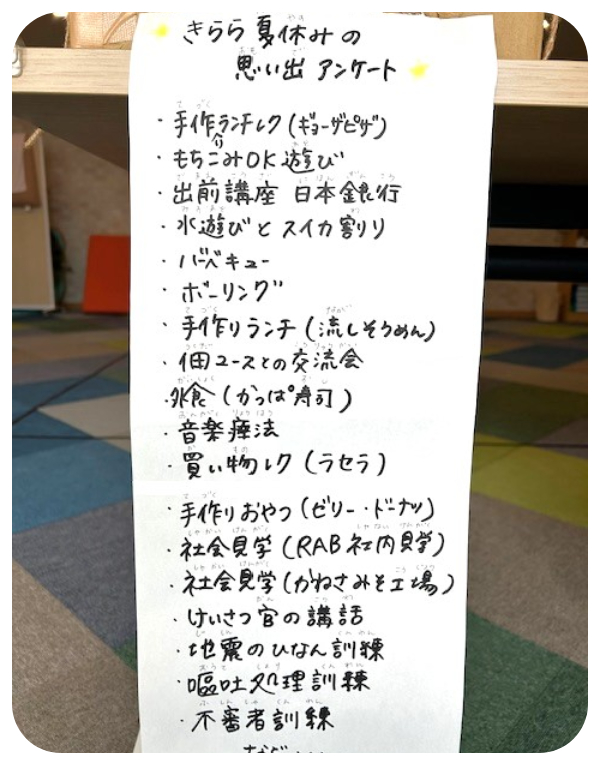 きらら夏休みの
思い出アンケート
・手作りランチレク(ギョーザピザ)
・もちこみOK遊び
・出前講座 日本銀行
・水遊びとスイカ割り
・バーベキュー
・ボーリング
・手作りランチ(流しそうめん)
・佃ユースとの交流会
・外食(かっぱ寿司)
・音楽療法
・買い物レク(ラセラ)
・手作りおやつ(ゼリー・ドーナツ)
・社会見学(RAB社内見学)
・社会見学(かねさみそ工場)
・けいさつ官の講話
・地震のひなん訓練
・嘔吐処理訓練
・不審者訓練
など...